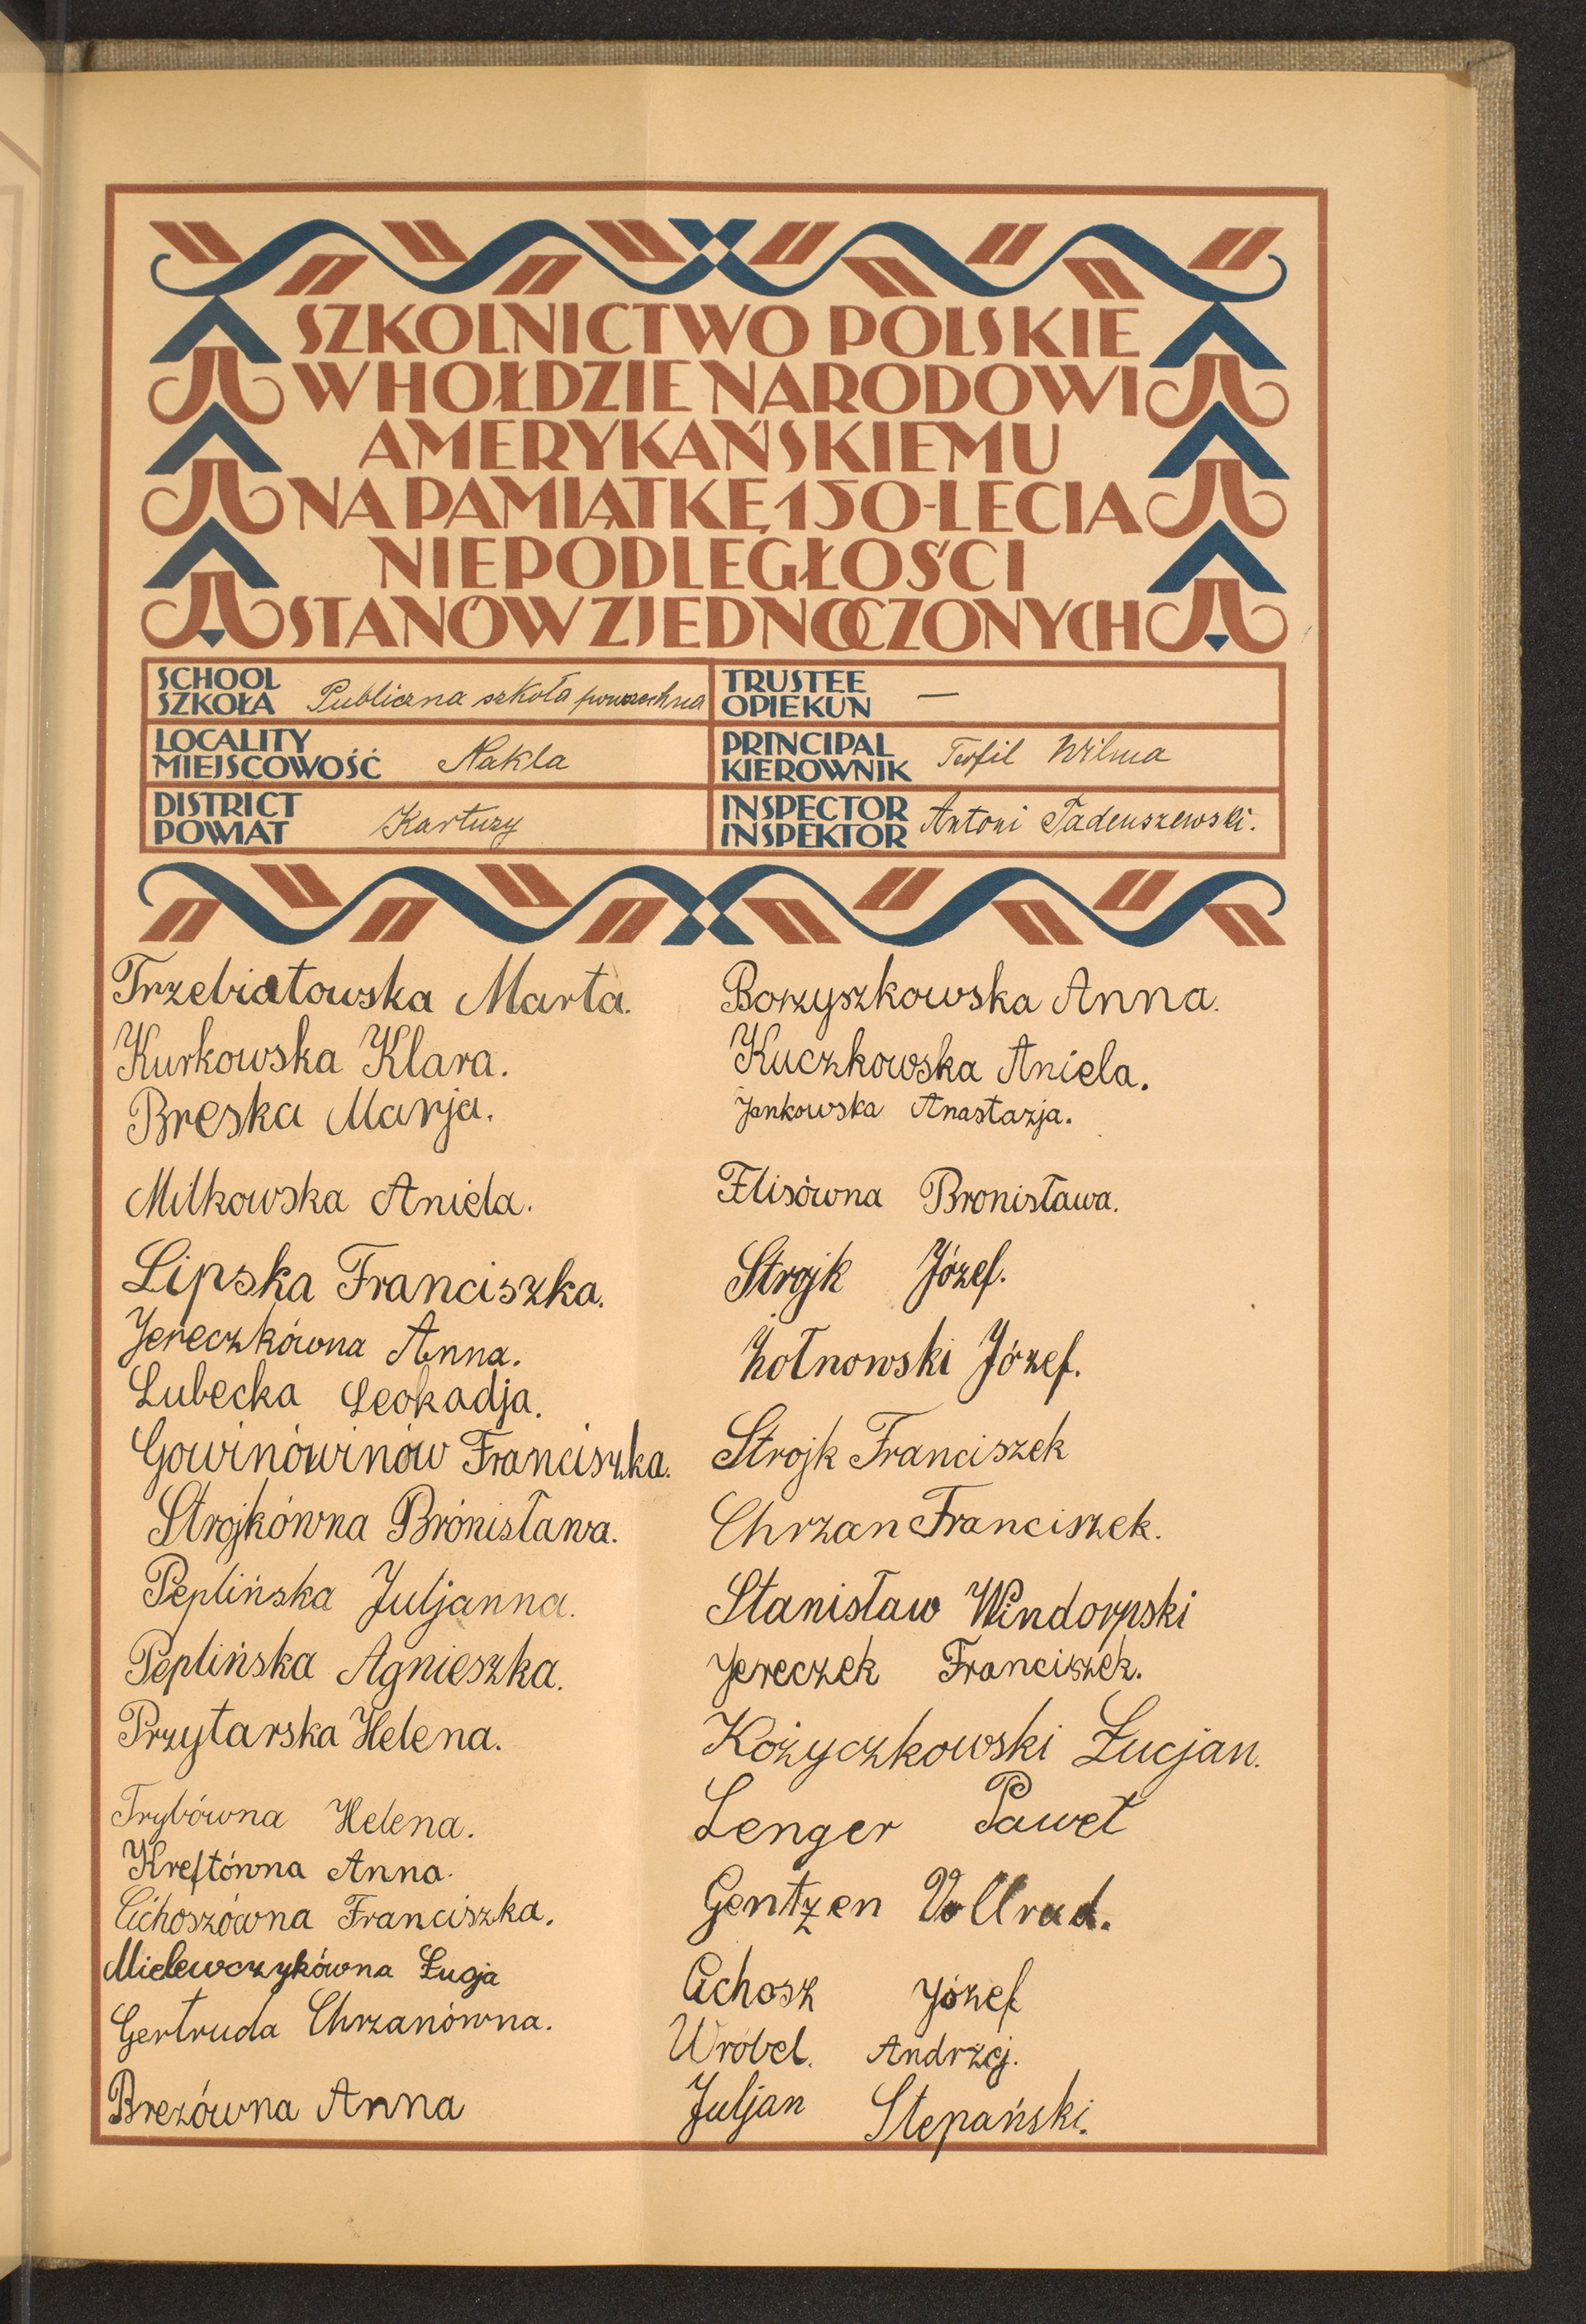 SZKOLNICTWO POLSKIE
W HOŁDZIE NARODOWI
AMERYKAŃSKIEMU
NA PAMIĄTKĘ 150-LECIA
NIEPODLEGŁOŚCI
STANÓW ZJEDNOCZONYCH
SCHOOL
SZKOŁA Publiczna szkoła powszechna
TRUSTEE
OPIEKUN —
LOCALITY
MIEJSCOWOŚĆ Nakla
PRINCIPAL
KIEROWNIK Teofil Wilma
DISTRICT
POWIAT Kartuzy
INSPECTOR
INSPEKTOR Antoni Tadeuszewski.
Trzebiatowska Marta.
Kurkowska Klara.
Breska Marja.
Milkowska Aniela.
Lipska Franciszka.
Jereczkówna Anna.
Lubecka Leokadja.
Gowinówinów Franciszka.
Strojkówna Brónisława.
Peplińska Juljanna.
Peplińska Agnieszka.
Przytarska Helena.
Trybówna Helena.
Kreftówna Anna.
Cichoszówna Franciszka.
Mielewczykówna Łucja
Gertruda Chrzanówna.
Brezówna Anna
Borzyszkowska Anna.
Kuczkowska Aniela.
Jankowska Anastazja.
Elisówna Bronisława.
Strojk Józef.
Żołnowski Józef.
Strojk Franciszek
Chrzan Franciszek.
Stanisław Windorpski
Jereczek Franciszek.
Kożyczkowski Łucjan.
Lenger Paweł
Gentzen Vollrad.
Cichosz Józef
Wróbel. Andrzej.
Juljan Stepański.